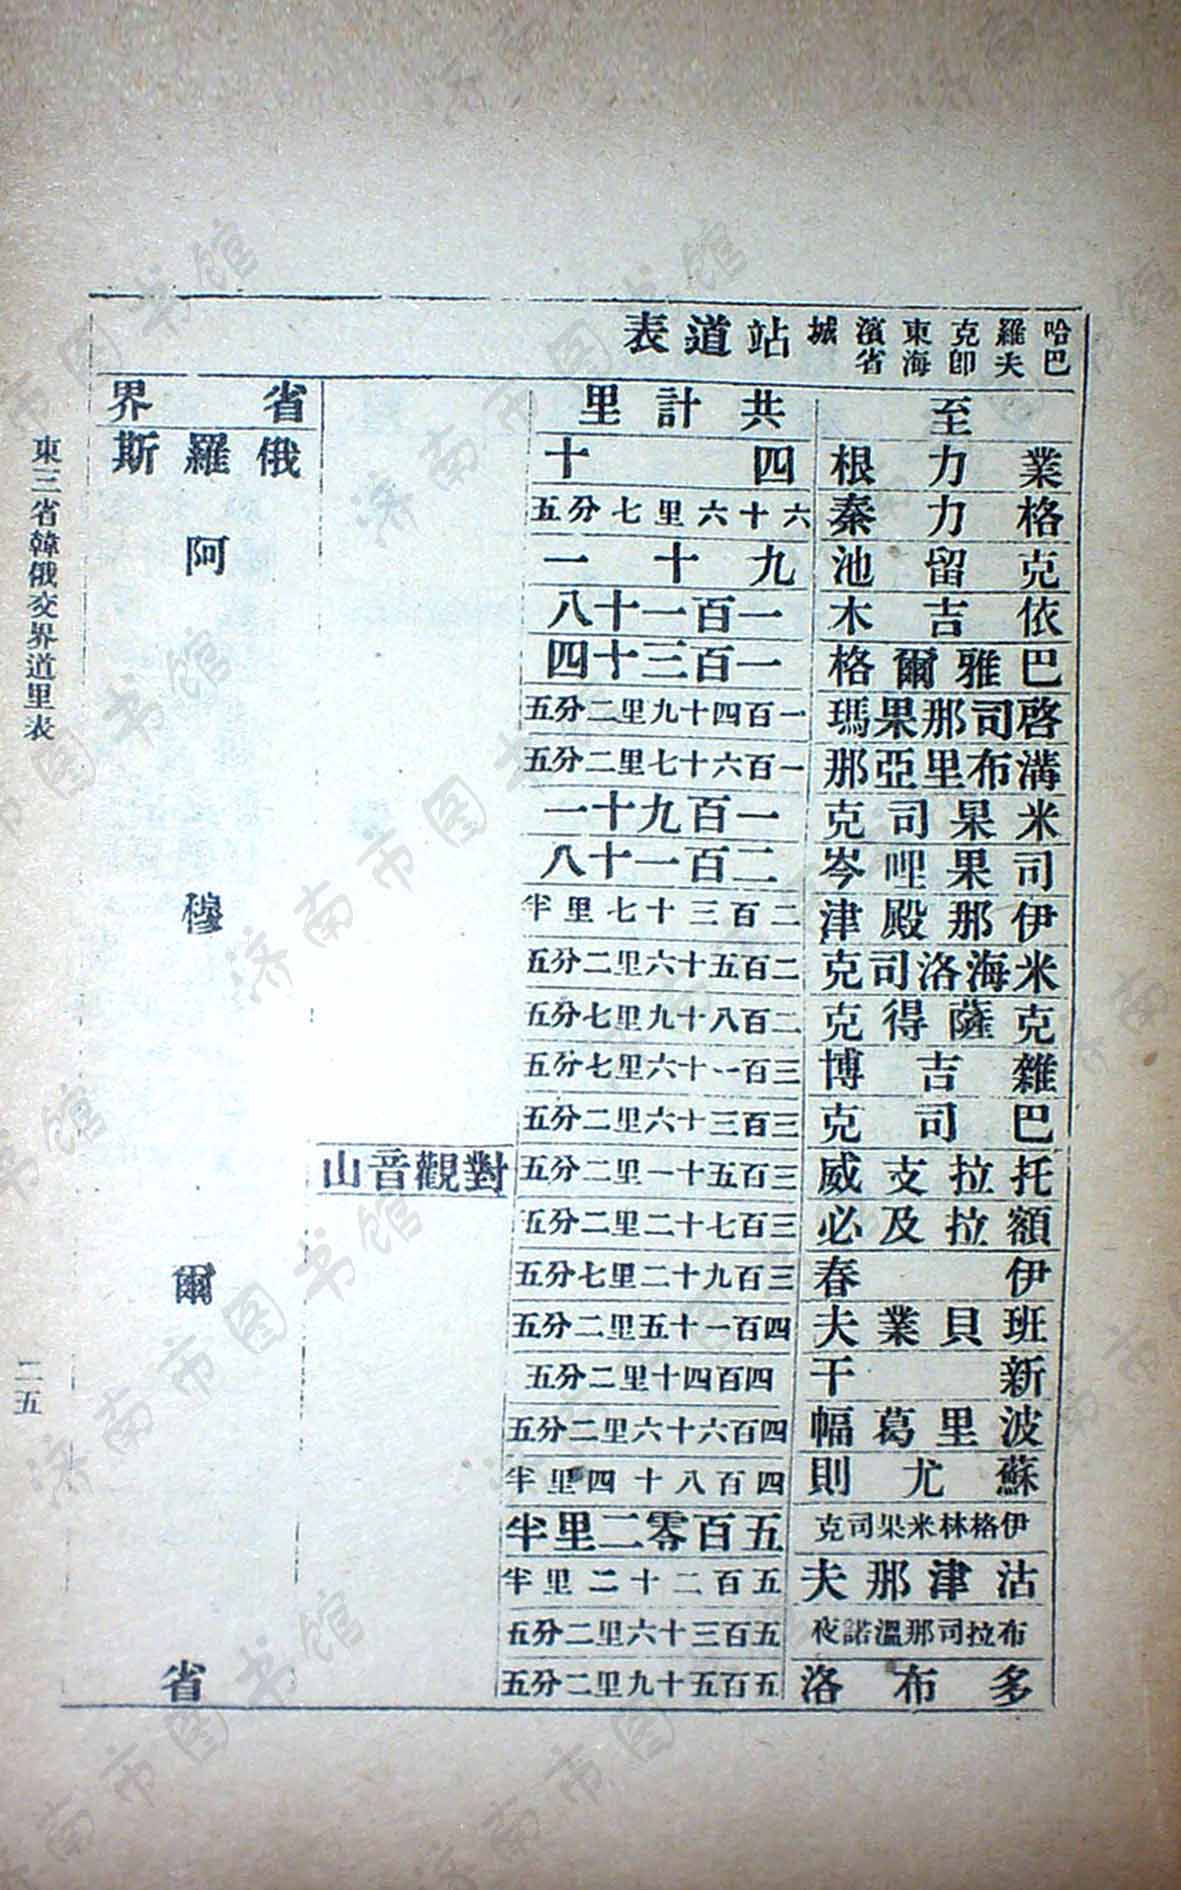 哈巴羅夫克即東海濱省城站道表
至 共計里 省界
業力根 四十 俄羅斯阿穆爾省
格力秦 六十六里七分五
克留池 九十一
依吉木 一百一十八
巴雅爾格 一百三十四
啓司那果瑪 一百四十九里二分五
溝布里亞那 一百六十七里二分五
米果司克 一百九十一
司果哩岑 二百一十八
伊那殿津 二百三十七里半
米海洛司克 二百五十六里二分五
克薩得克 二百八十九里七分五
雜吉博 三百一十六里七分五
巴司克 三百三十六里二分五
托拉支威 三百五十一里二分五 對觀音山
額拉及必 三百七十二里二分五
伊春 三百九十二里七分五
班貝業夫 四百一十五里二分五
新干 四百四十里二分五
波里葛幅 四百六十六里二分五
蘇尤則 四百八十四里半
伊格林米果司克 五百零二里半
沽津那夫 五百二十二里半
布拉司那溫諾夜 五百三十六里二分五
多布洛 五百五十九里二分五
東三省韓俄交界道里表
二五
济南市图书馆